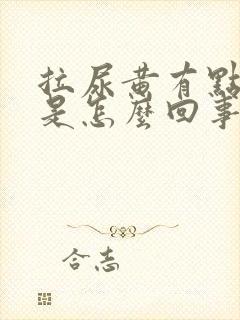 拉尿黄有點
是怎麼回事
合志